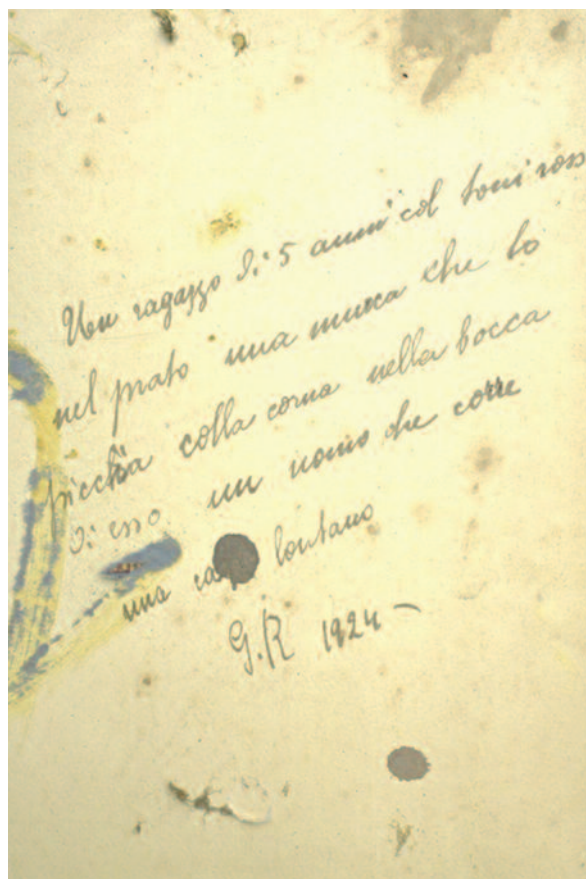 Un ragazzo di 5 anni col toni
nel prato una mucca che lo
picchia colla corna nella bocca
di esso un uomo che corre
una lontano
G.R 1924 –